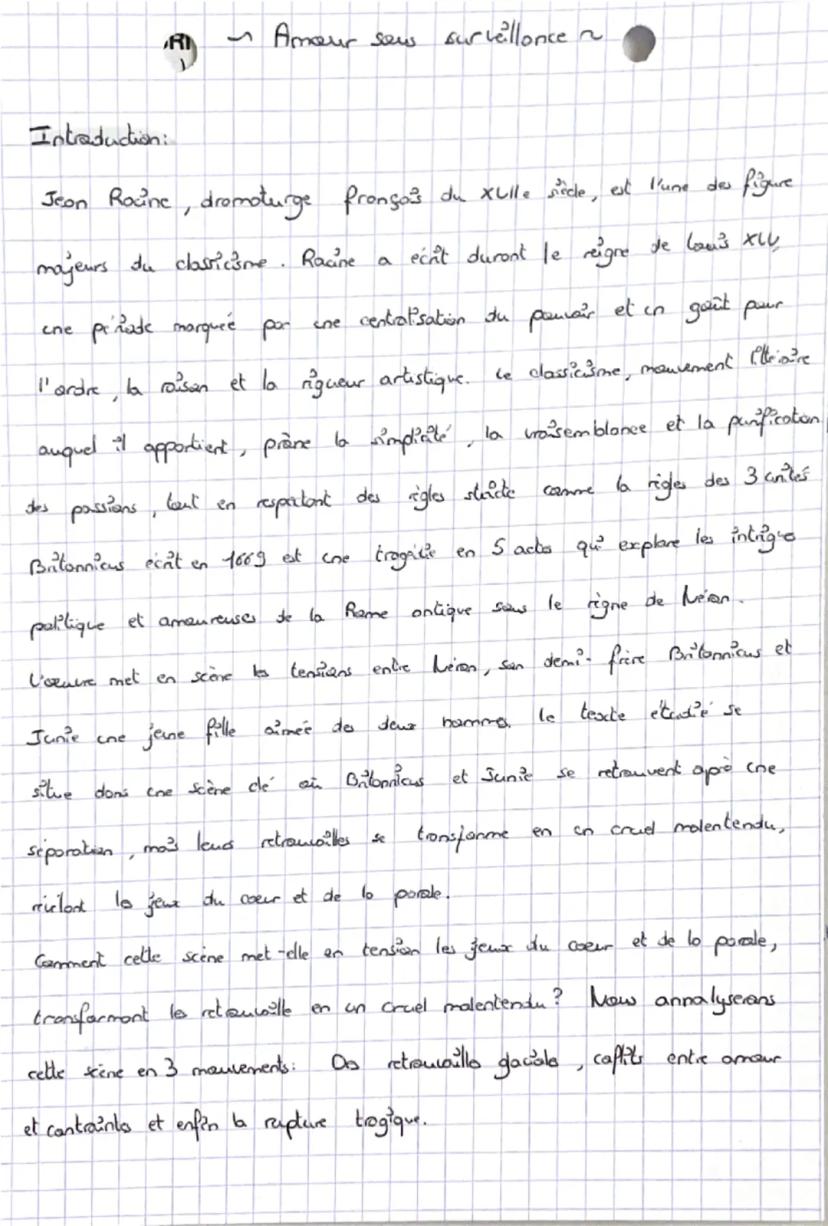 RI
)
~ Amour sous surveillance ~
Introduction:
Jean Racine, dramaturge français du XVIIe siècle, est l'une des figure
majeurs du classicisme. Racine a écrit durant le reigne de Louis XIV,
une période marquée par une centralisation du pouvoir et un goût pour
l'ordre, la raison et la rigueur artistique. Le classicisme, mouvement littéraire
auquel il appartient, prône la simplicité, la vraisemblance et la purification
des passions, tout en respectant des règles stricte comme la règles des 3 unités
Britannicus écrit en 1669 est une tragédie en 5 actes qui explore les intrigues
politique et amoureuses de la Rome antique sous le règne de Néron.
L'œuvre met en scène les tensions entre Néron, son demi-frère Britannicus et
Junie une jeune fille aimée des deux hommes. Le texte étudié se
situe dans une scène clé où Britannicus et Junie se retrouvent après une
séparation, mais leurs retrouvailles se transforme en un cruel malentendu,
mêlant les jeux du cœur et de la parole.
Comment cette scène met-elle en tension les jeux du cœur et de la parole,
transformant les retrouvaille en un cruel malentendu? Nous annalyserons
cette scène en 3 mouvements: Des retrouvailles glaciales, conflits entre amour
et contraintes et enfin la rupture tragique.